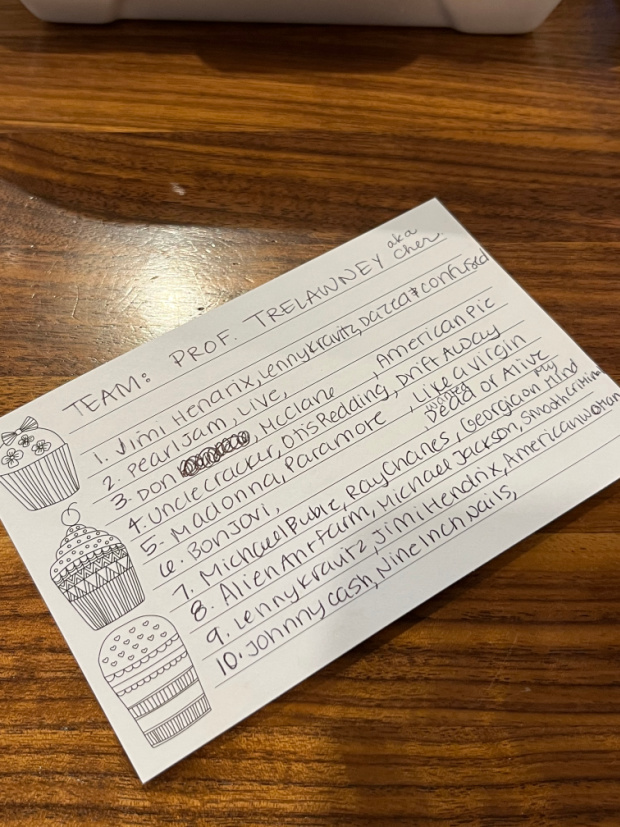 TEAM: PROF. TRELAWNEY aka Cher
1. Jimi Hendrix, Lenny Kravitz, Dazed & confused
2. Pearl Jam, Live,
3. Don McClane, American Pie
4. Uncle Cracker, Otis Redding, Drift Away
5. Madonna, Paramore, Like a virgin
6. Bon Jovi, Wanted Dead or Alive
7. Michael Buble, Ray Charles, Georgia on My Mind
8. Alien Ant Farm, Michael Jackson, Smooth Criminal
9. Lenny Kravitz, Jimi Hendrix, American Woman
10. Johnny Cash, Nine Inch Nails,